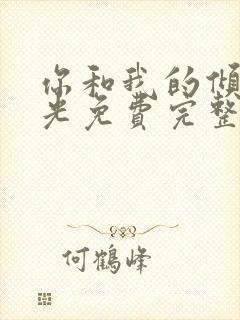 你和我的倾
光免费完整
何鶴峰